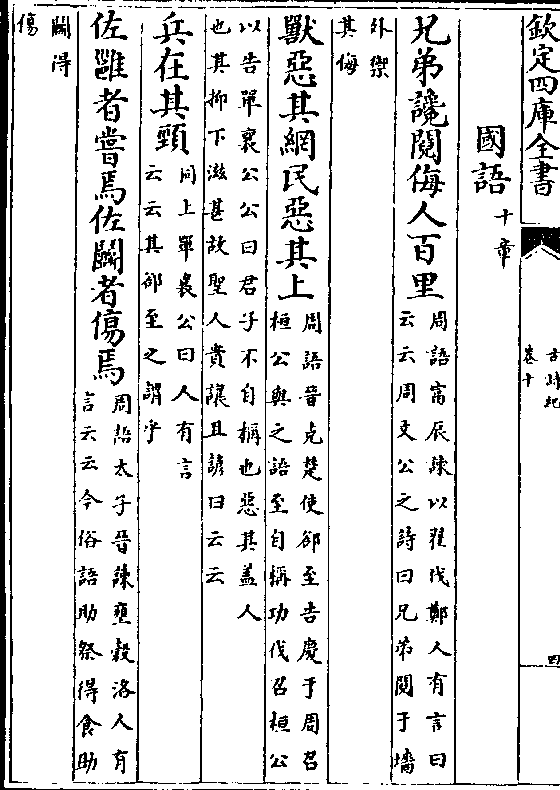 欽定四庫全書
古詩紀
卷十
四
國語十章
兄弟讒鬩侮人百里
周語富辰諫以狄伐鄭人有言曰
云云周文公之詩曰兄弟鬩于墻
外禦
其侮
獸惡其網民惡其上
周語晉克楚使郤至告慶于周召
桓公與之語至自稱功伐召桓公
以告單襄公公曰君子不自稱也惡其蓋人
也其抑下滋甚故聖人貴讓且諺曰云云
兵在其頸
同上單襄公曰人有言
云云其郤至之謂乎
佐雝者嘗焉佐鬬者傷焉
周語太子晉諫壅穀洛人有
言云云今俗語助祭得食助
鬬得
傷